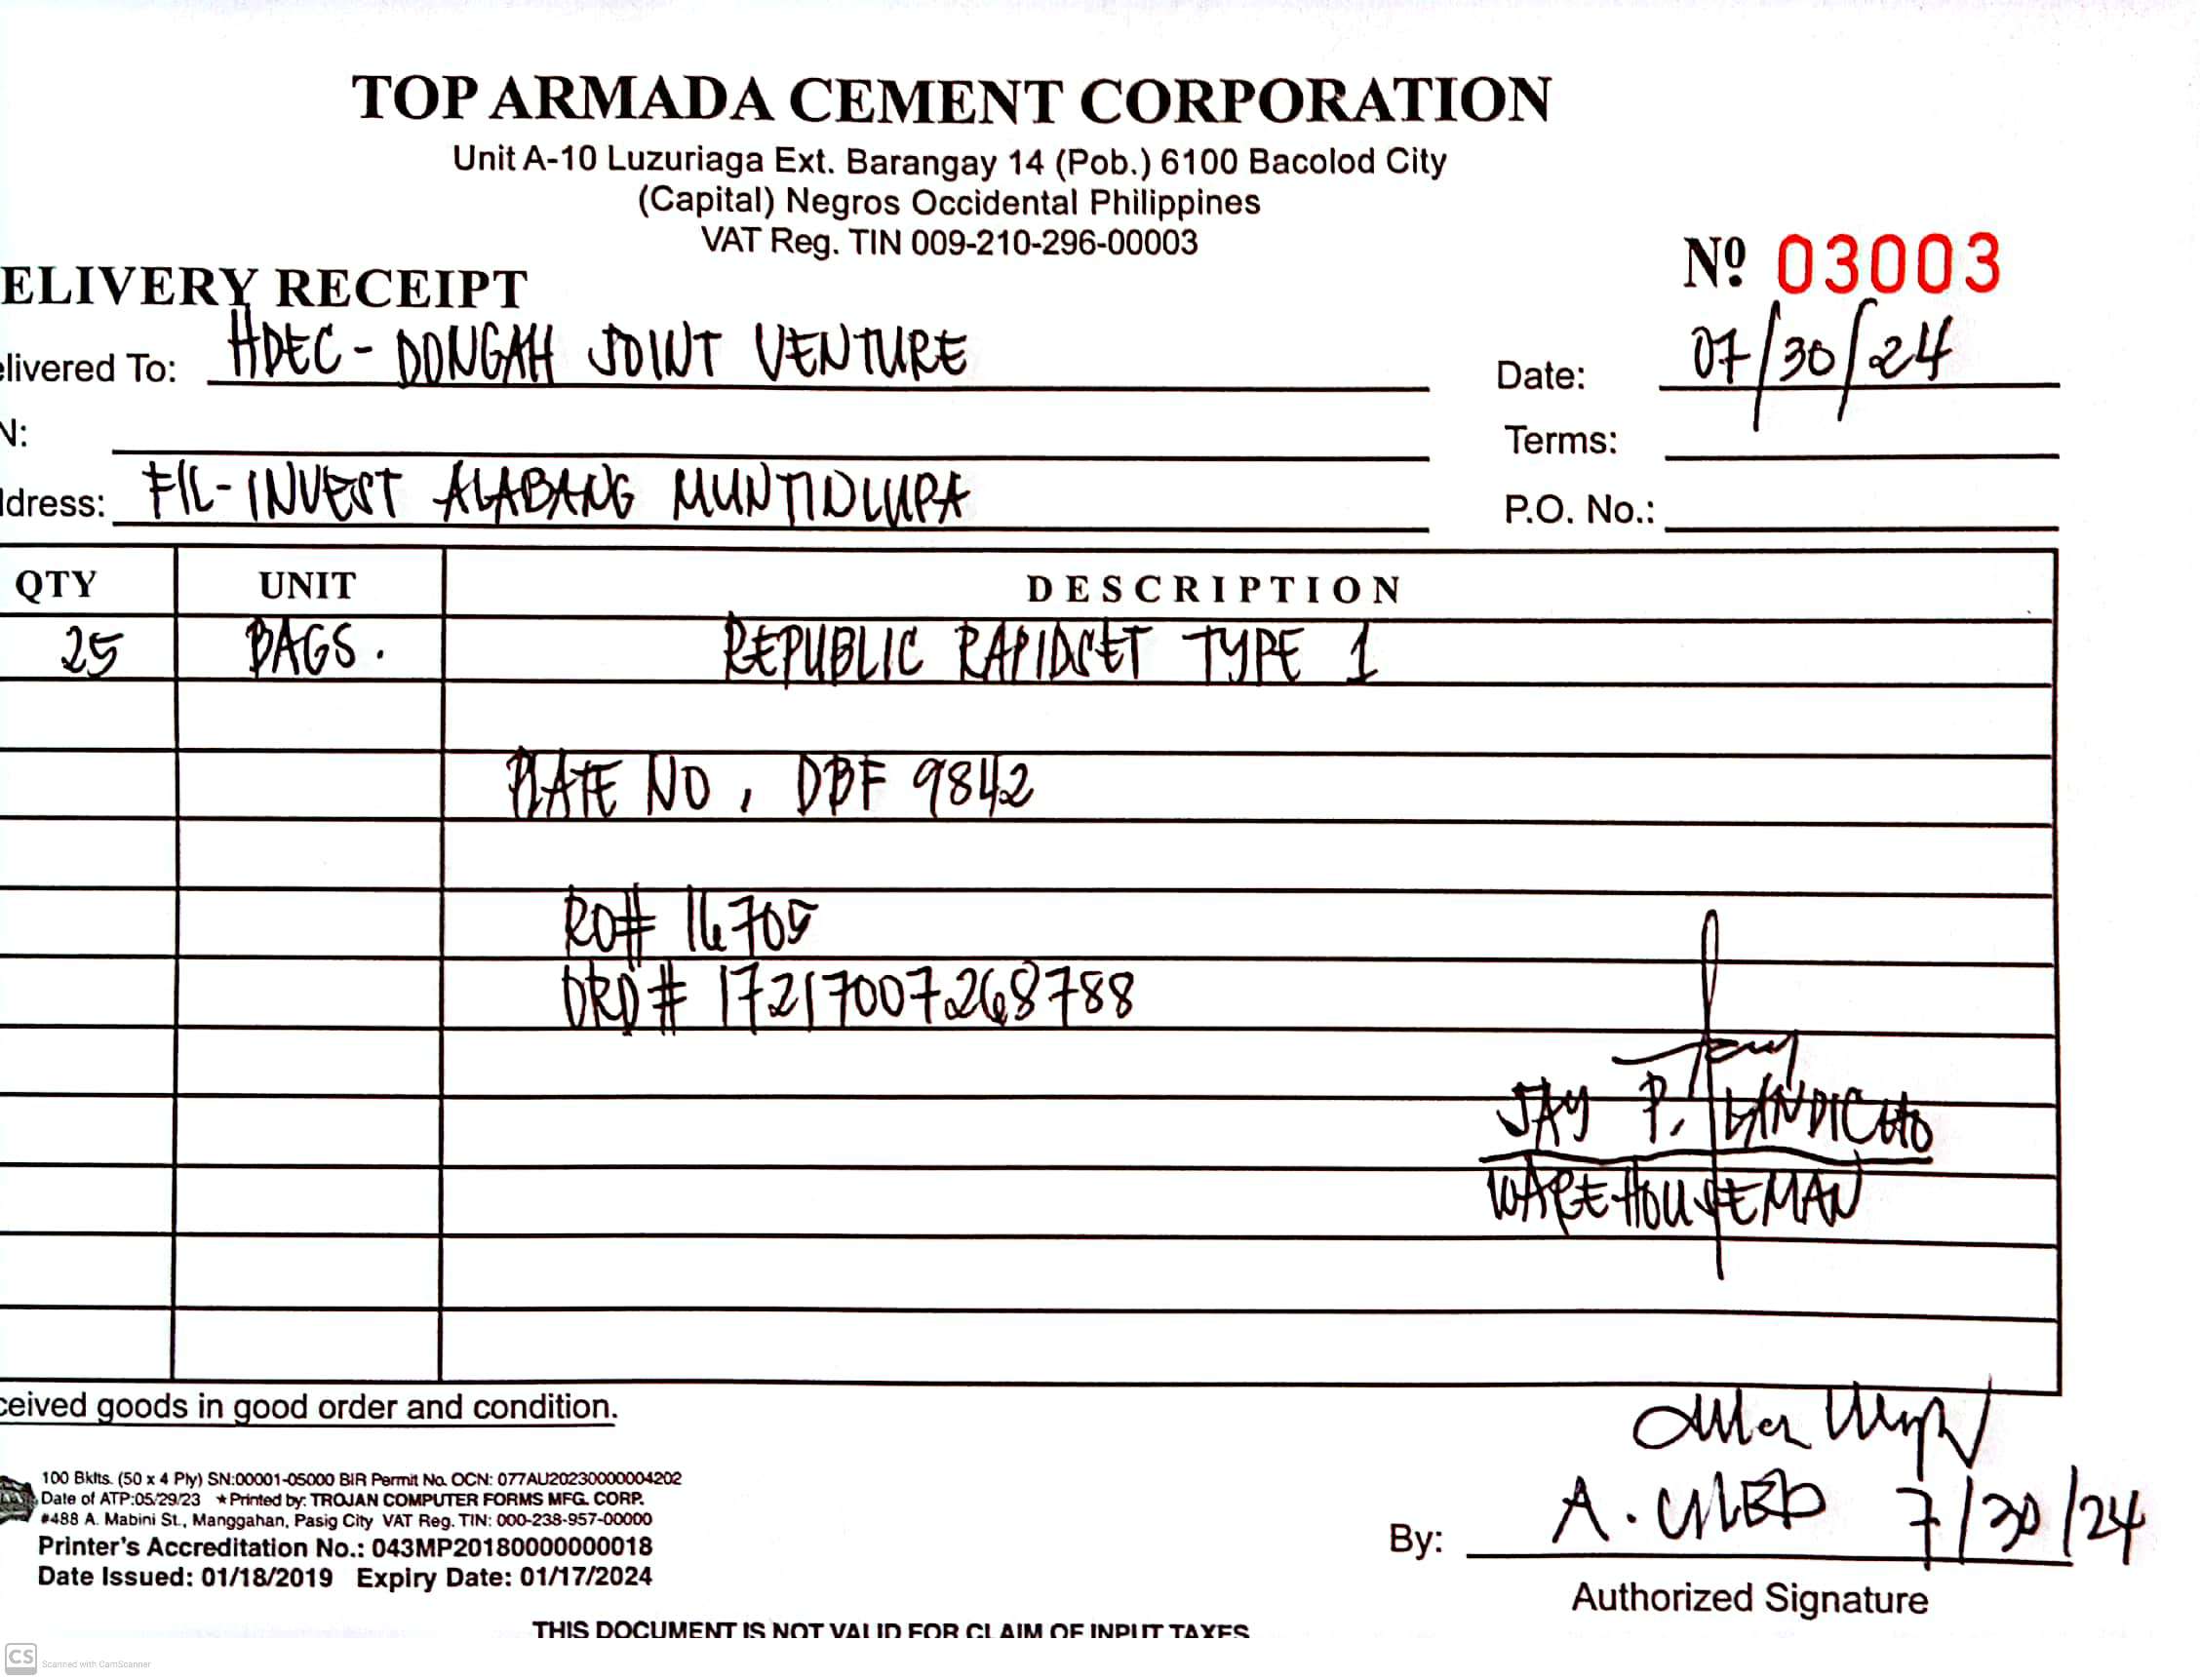 TOP ARMADA CEMENT CORPORATION
Unit A-10 Luzuriaga Ext. Barangay 14 (Pob.) 6100 Bacolod City
(Capital) Negros Occidental Philippines
VAT Reg. TIN 009-210-296-00003
Nº 03003
ELIVERY RECEIPT
elivered To: HDEC - DONGAH JOINT VENTURE
Date: 07/30/24
N:
Terms:
ddress: FIL-INVEST ALABANG MUNTIDLUPA
P.O. No.:
QTY UNIT DESCRIPTION
25 BAGS. REPUBLIC RAPIDSET TYPE 1
PLATE NO, DBF 9842
RO# 16705
DRD# 1721700726 8788
JAY P. LANDICHO
WAREHOUSEMAN
ceived goods in good order and condition.
100 Bklts. (50 x 4 Ply) SN:00001-05000 BIR Permit No. OCN: 077AU20230000004202
Date of ATP:05/29/23 ★Printed by: TROJAN COMPUTER FORMS MFG. CORP.
#488 A. Mabini St., Manggahan, Pasig City VAT Reg. TIN: 000-238-957-00000
Printer's Accreditation No.: 043MP20180000000018
Date Issued: 01/18/2019 Expiry Date: 01/17/2024
By: A. 7/30/24
Authorized Signature
THIS DOCUMENT IS NOT VALID FOR CLAIM OF INPUT TAXES
CS Scanned with CamScanner